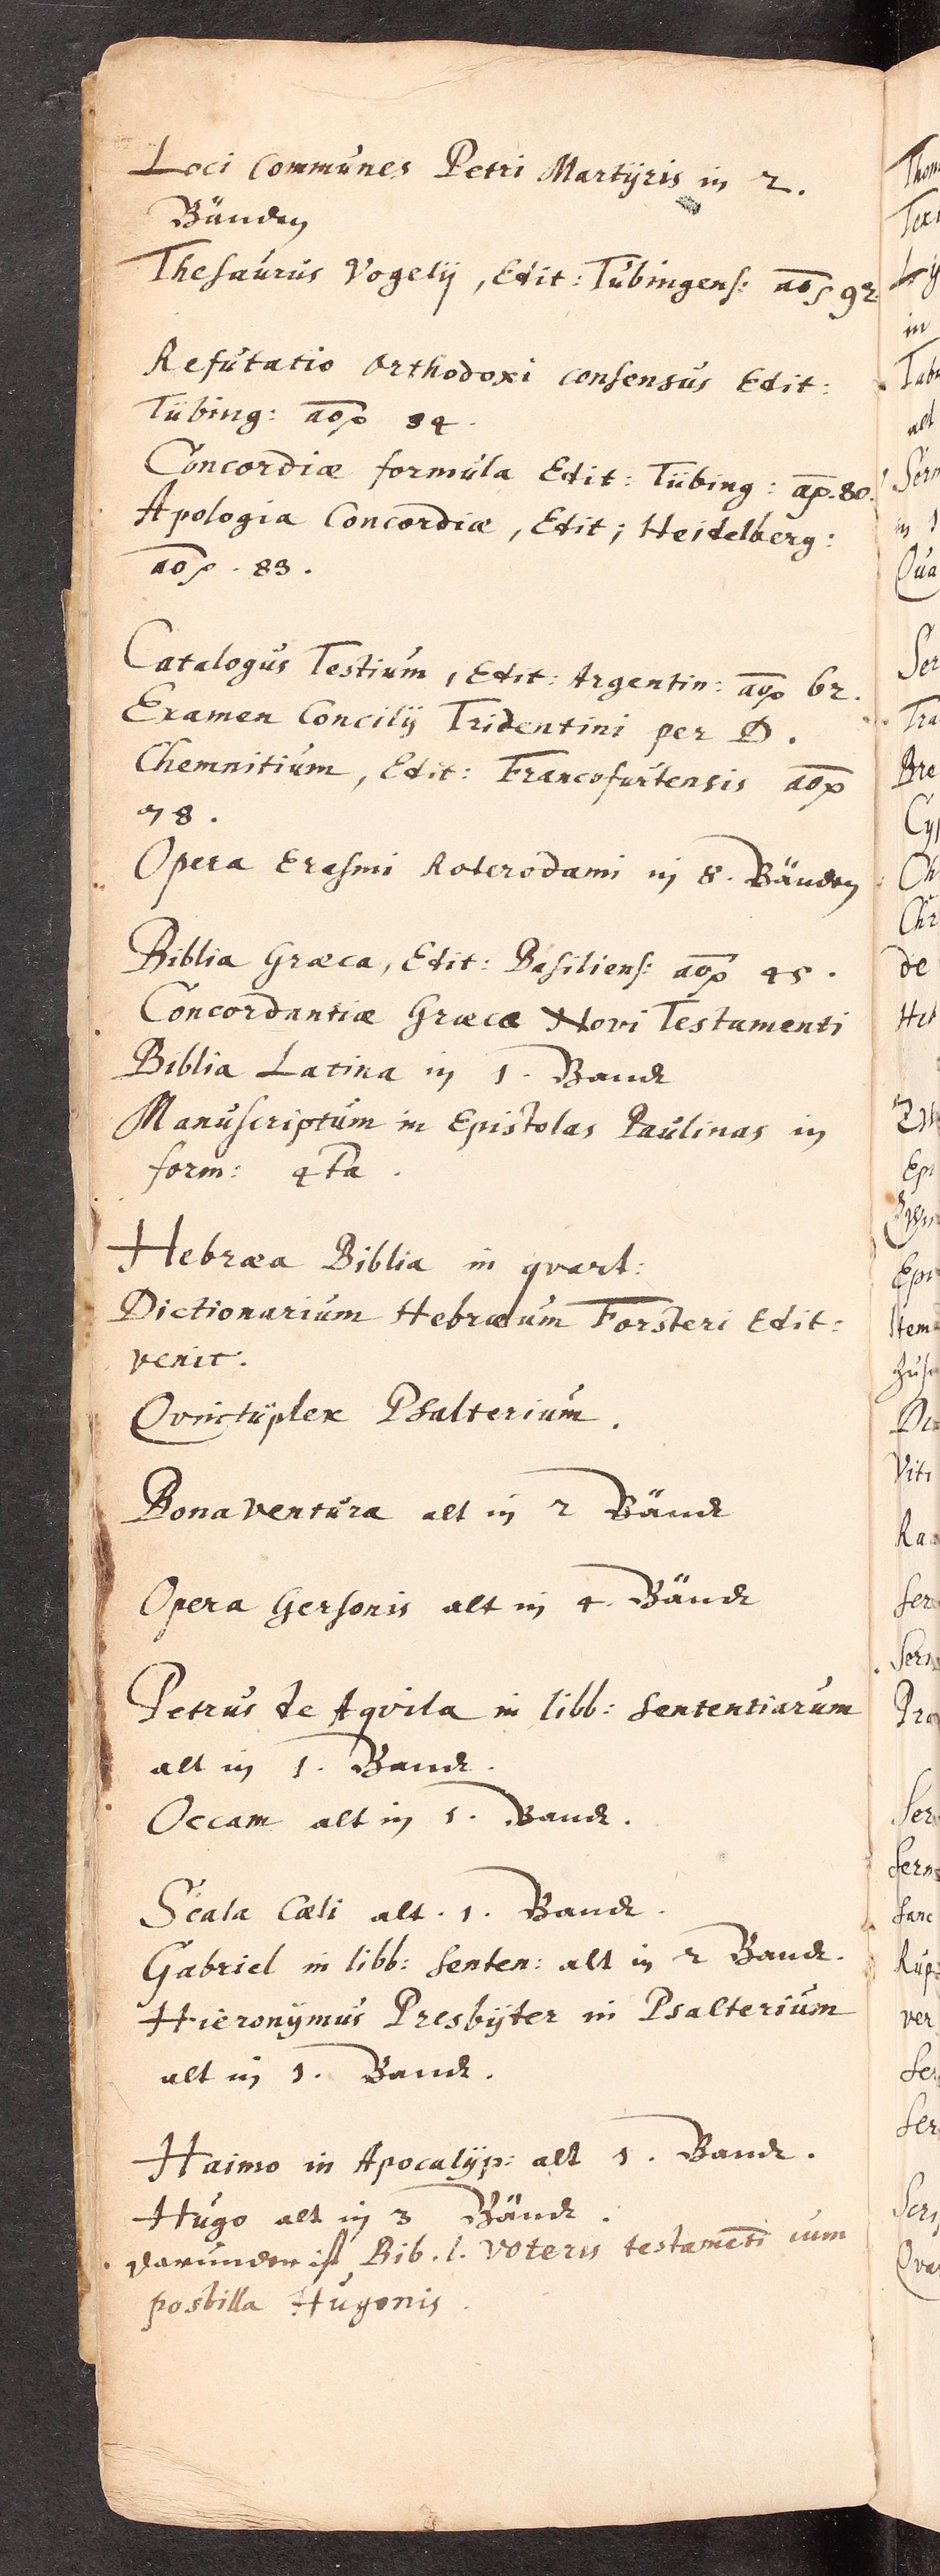 Loci Communes Petri Martÿris in 2.
Bänden
Thesaurus Vogelij, Edit: Tubingens: ao 92.
Refutatio Orthodoxi consensus Edit:
Tübing: ao 84.
Concordiæ formula Edit: Tübing: ao. 80.
Apologia Concordiæ, Edit; Heidelberg:
ao. 83.
Catalogus Testium, Edit: Argentin: ao 62.
Examen Concilij Tridentini per D.
Chemnitium, Edit: Francofurtensis ao
78.
Opera Erasmi Roterodami in 8. Bänden
Biblia Græca, Edit: Basiliens: ao 45.
Concordantiæ Græcæ Novi Testamenti
Biblia Latina in 1. Bandt
Manuscriptum in Epistolas Paulinas in
form: 4ta.
Hebræa Biblia in qvart:
Dictionarium Hebræum Forsteri Edit:
venit.
Qvinctüplex Psalterium.
Bonaventura alt in 2 Bändt
Opera Gersonis alt in 4. Bändt
Petrus de Aqvila in libb: Sententiarum
alt in 1. Bandt.
Occam alt in 1. Bandt.
Scala Cæli alt. 1. Bandt.
Gabriel in libb: Senten: alt in 2 Bandt.
Hieronÿmus Presbÿter in Psalterium
alt in 1. Bandt.
Haimo in Apocalÿp: alt 1. Bandt.
Hugo alt in 3 Bändt.
darunder ist Bib. l. Veteris testamēti cum
postilla Hugonis.